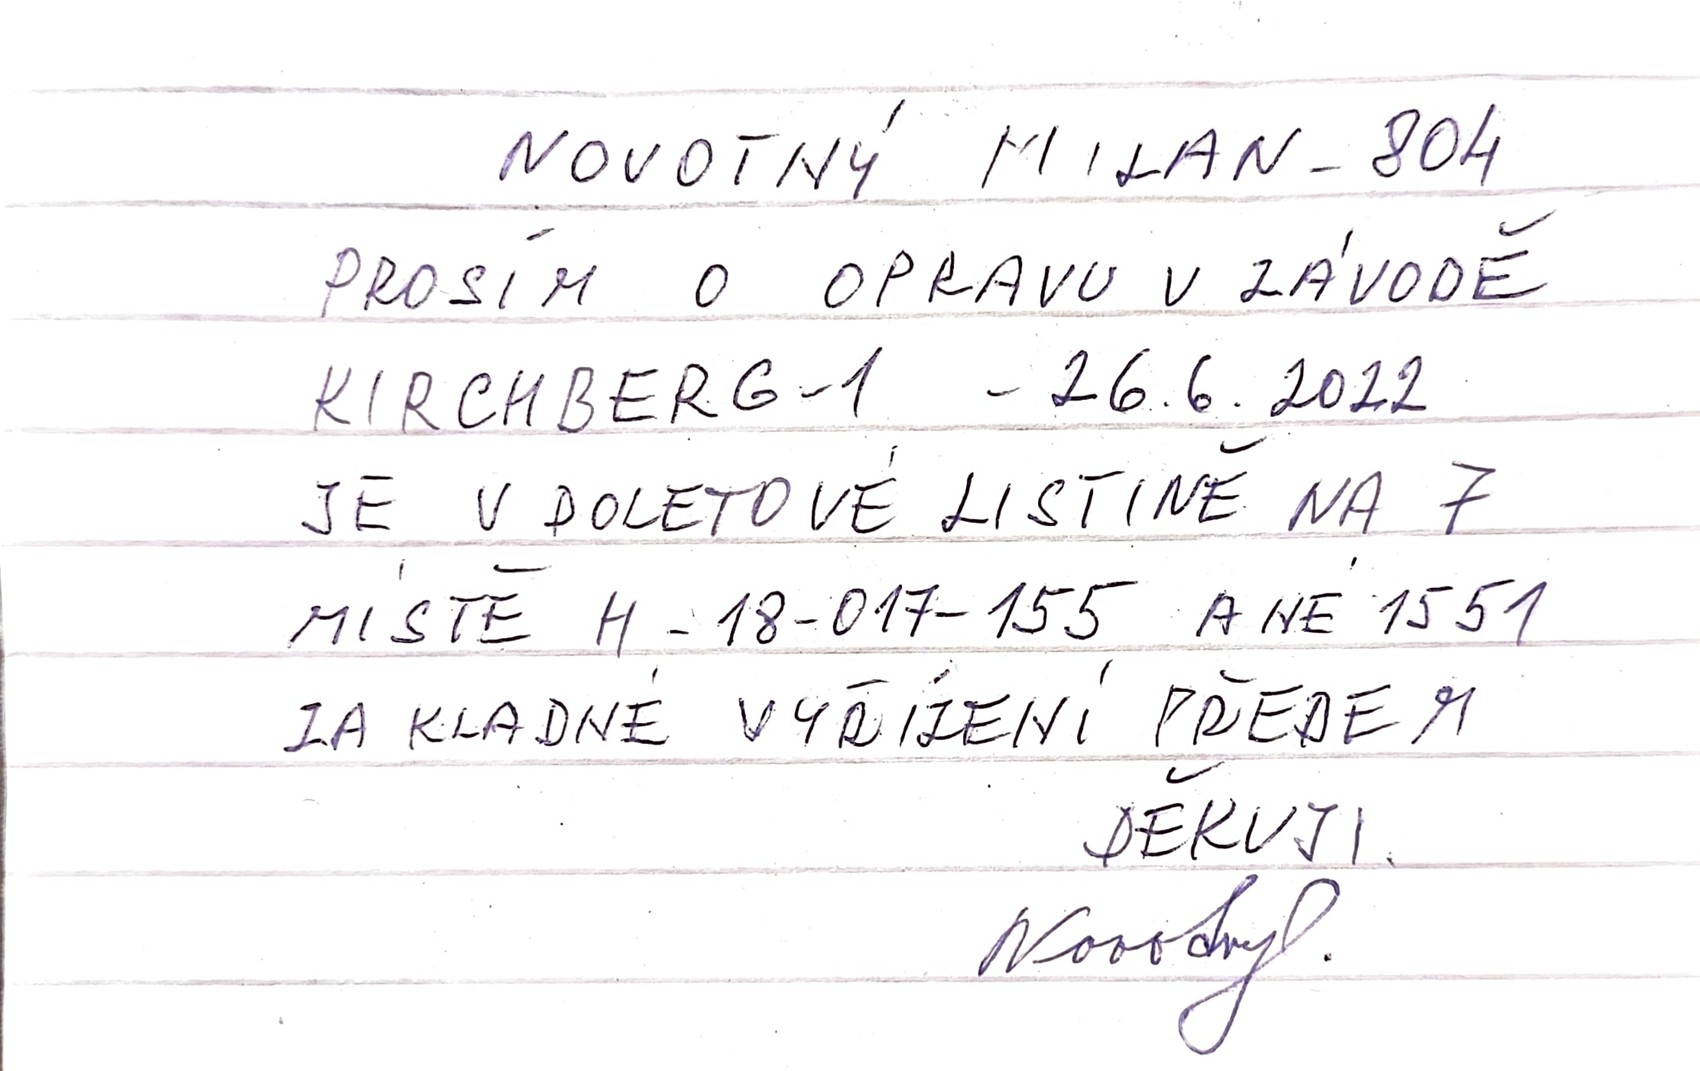 NOVOTNÝ MILAN - 804
PROSÍM O OPRAVU V ZÁVODĚ
KIRCHBERG-1 - 26.6.2022
JE V DOLETOVÉ LISTINĚ NA 7
MÍSTĚ H - 18-017-155 A NE 1551
ZA KLADNÉ VYŘÍZENÍ PŘEDEM
DĚKUJI.
Novotný.